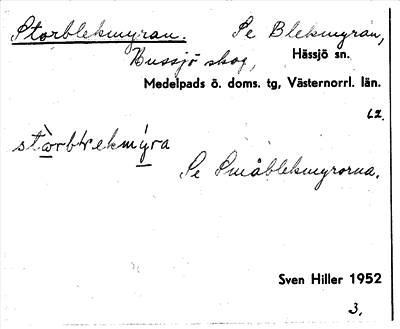 Storblekmyran. Se Blekmyran,
Hussjö skog, Hässjö sn.
Medelpads ö. doms. tg, Västernorrl. län.
62.
stòrblekmýra
Se Småblekmyrorna.
Sven Hiller 1952
3.